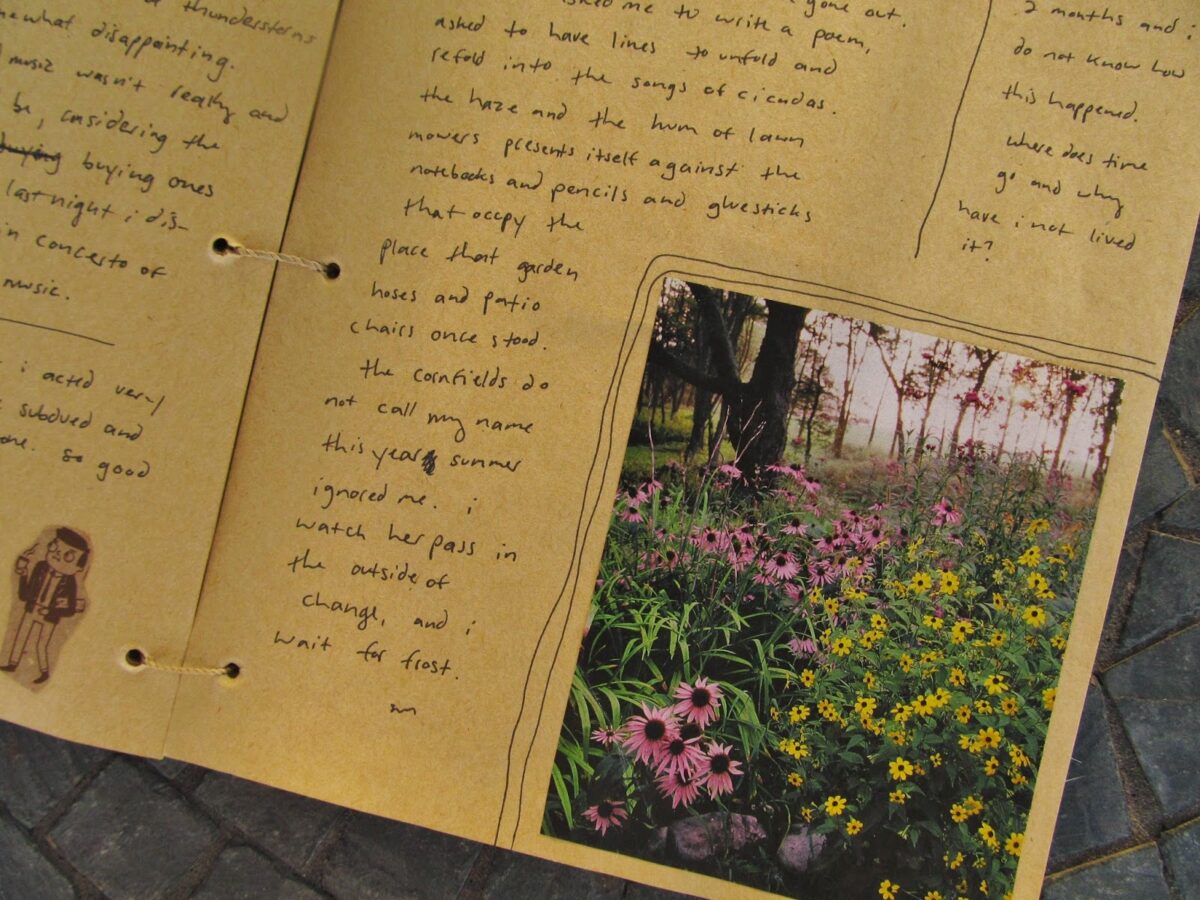 thunderstorms
somewhat disappointing.
music wasn't really and
be, considering the
buying buying ones
last night i dis-
in concerto of
music.
i acted very
subdued and
one. so good
gone out.
asked me to write a poem,
asked to have lines to unfold and
refold into the songs of cicadas.
the haze and the hum of lawn
mowers presents itself against the
notebooks and pencils and gluesticks
that occupy the
place that garden
hoses and patio
chairs once stood.
the cornfields do
not call my name
this year, summer
ignored me. i
watch her pass in
the outside of
change, and i
wait for frost.
2 months and i
do not know how
this happened.
where does time
go and why
have i not lived
it?